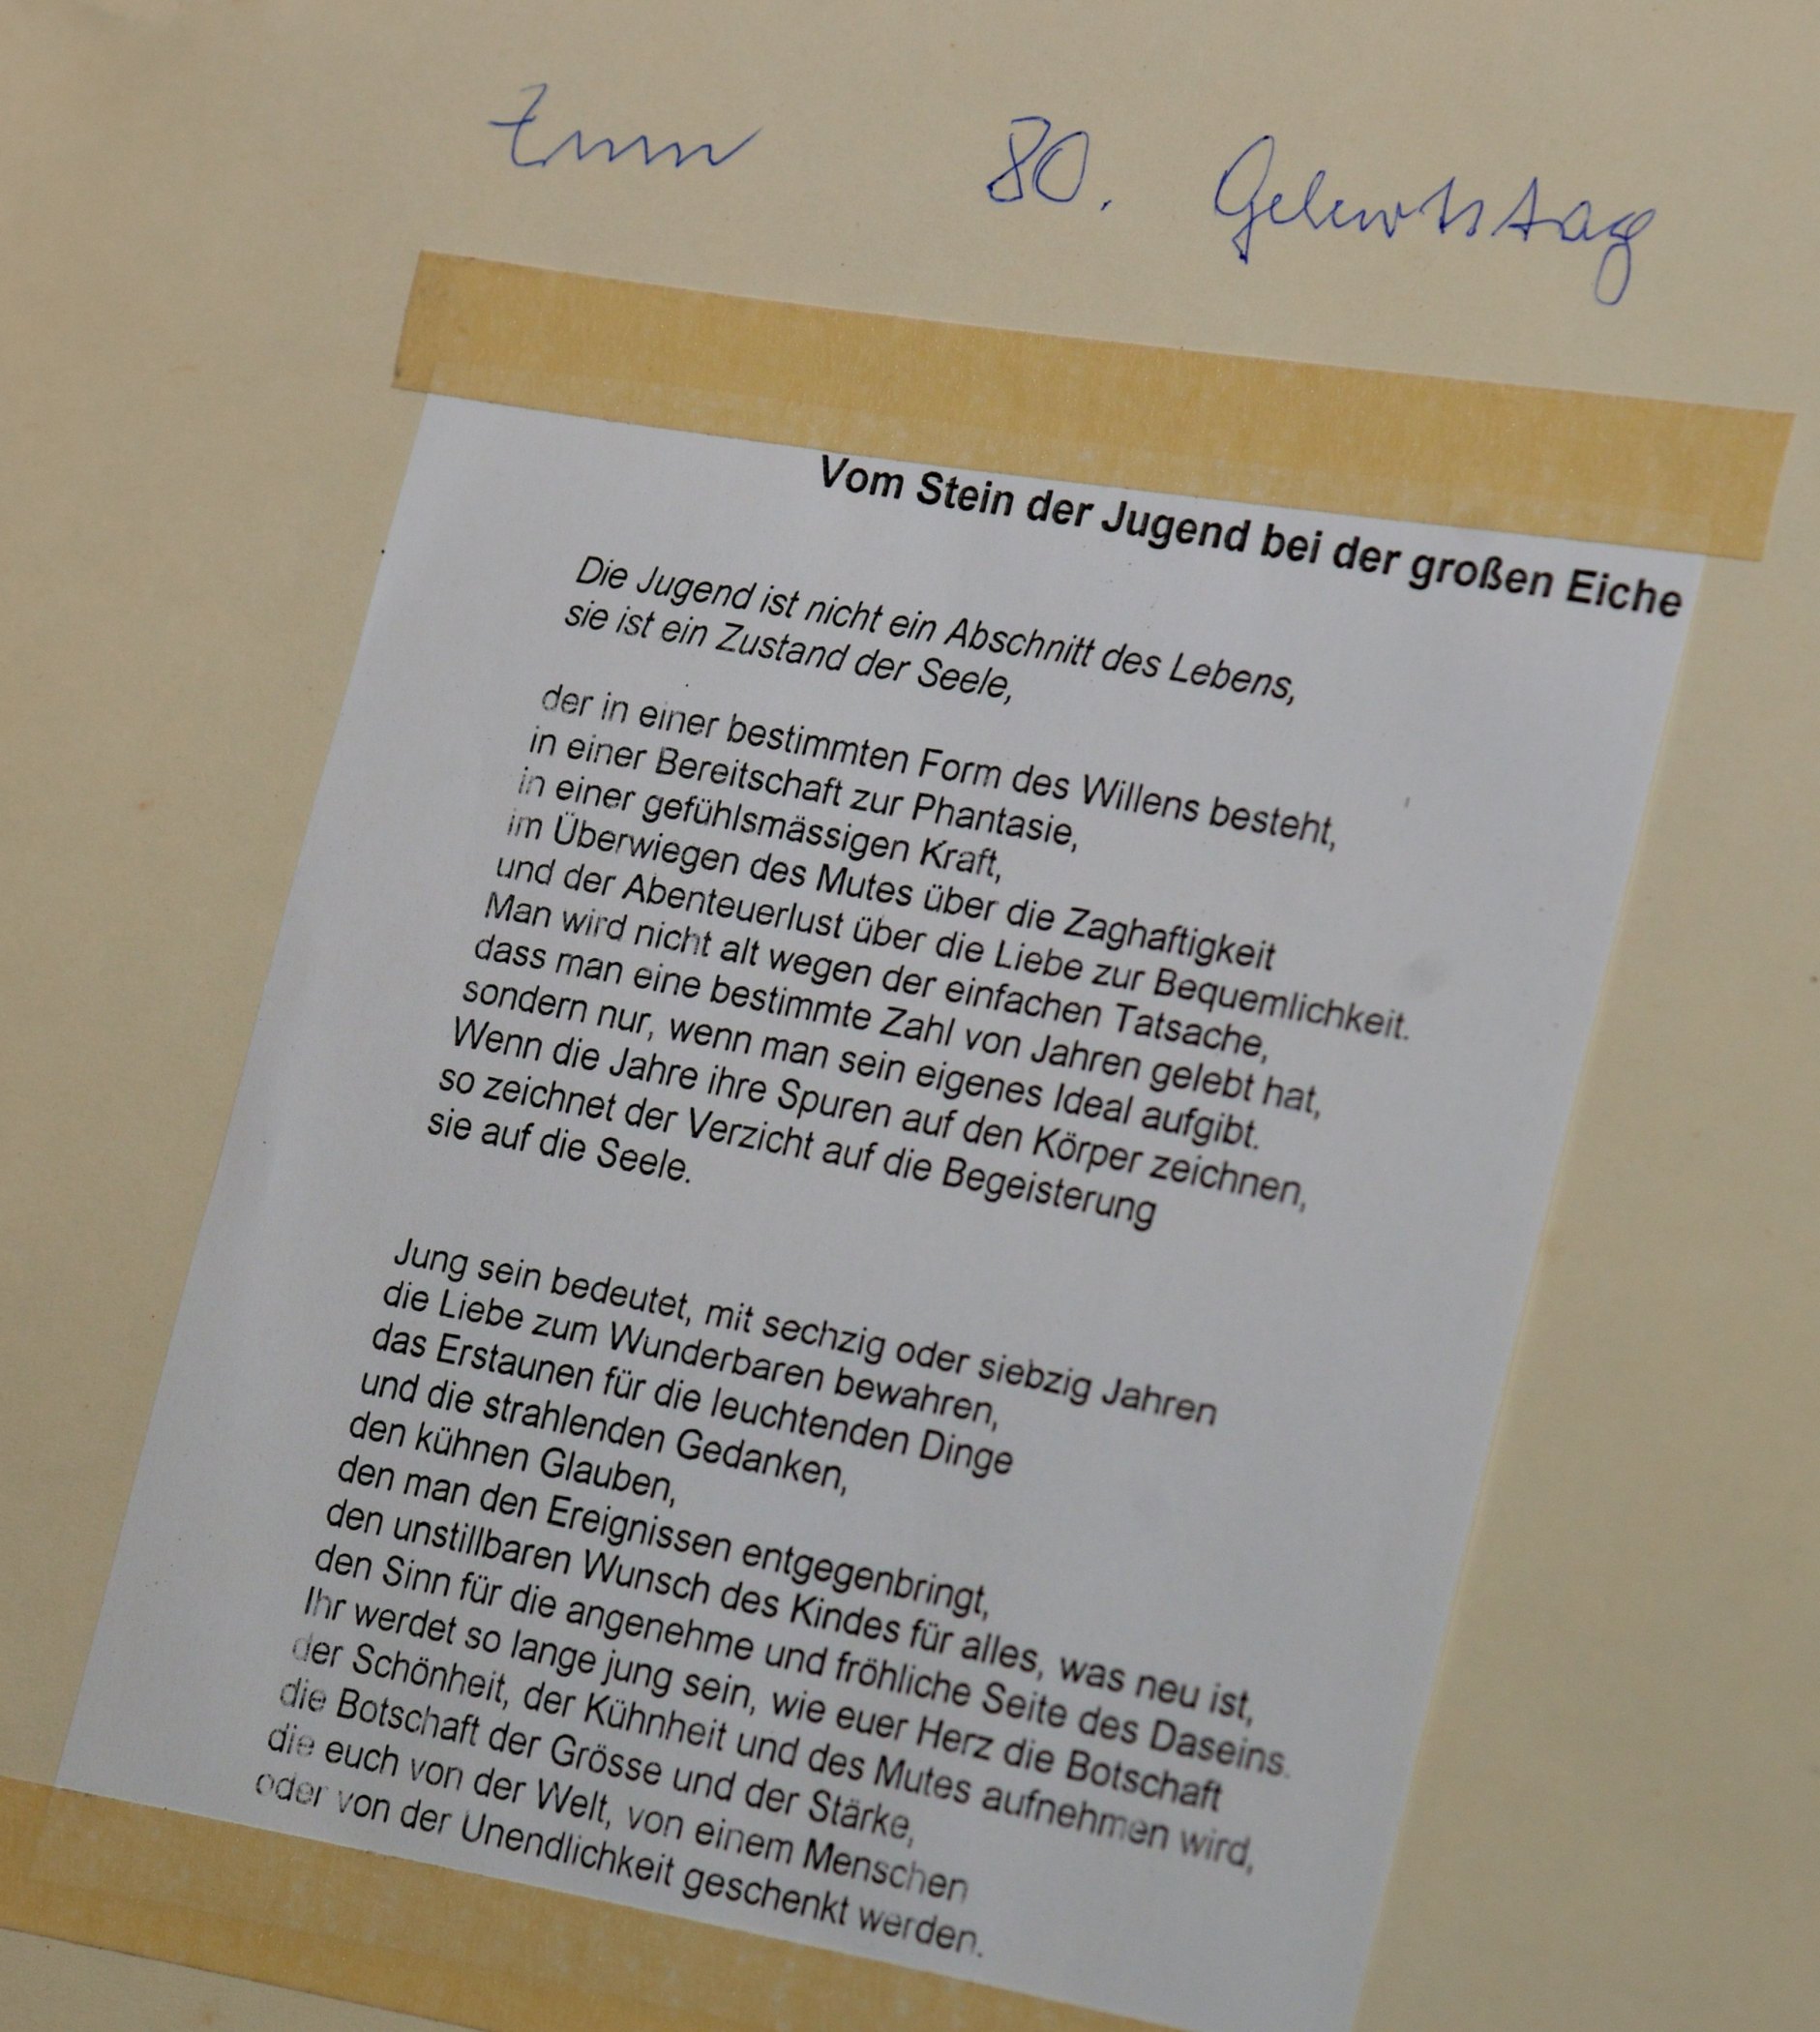 Zum 80. Geburtstag
Vom Stein der Jugend bei der großen Eiche
Die Jugend ist nicht ein Abschnitt des Lebens,
sie ist ein Zustand der Seele,
der in einer bestimmten Form des Willens besteht,
in einer Bereitschaft zur Phantasie,
in einer gefühlsmässigen Kraft,
im Überwiegen des Mutes über die Zaghaftigkeit
und der Abenteuerlust über die Liebe zur Bequemlichkeit.
Man wird nicht alt wegen der einfachen Tatsache,
dass man eine bestimmte Zahl von Jahren gelebt hat,
sondern nur, wenn man sein eigenes Ideal aufgibt.
Wenn die Jahre ihre Spuren auf den Körper zeichnen,
so zeichnet der Verzicht auf die Begeisterung
sie auf die Seele.
Jung sein bedeutet, mit sechzig oder siebzig Jahren
die Liebe zum Wunderbaren bewahren,
das Erstaunen für die leuchtenden Dinge
und die strahlenden Gedanken,
den kühnen Glauben,
den man den Ereignissen entgegenbringt,
den unstillbaren Wunsch des Kindes für alles, was neu ist,
den Sinn für die angenehme und fröhliche Seite des Daseins.
Ihr werdet so lange jung sein, wie euer Herz die Botschaft
der Schönheit, der Kühnheit und des Mutes aufnehmen wird,
die Botschaft der Grösse und der Stärke,
die euch von der Welt, von einem Menschen
oder von der Unendlichkeit geschenkt werden.